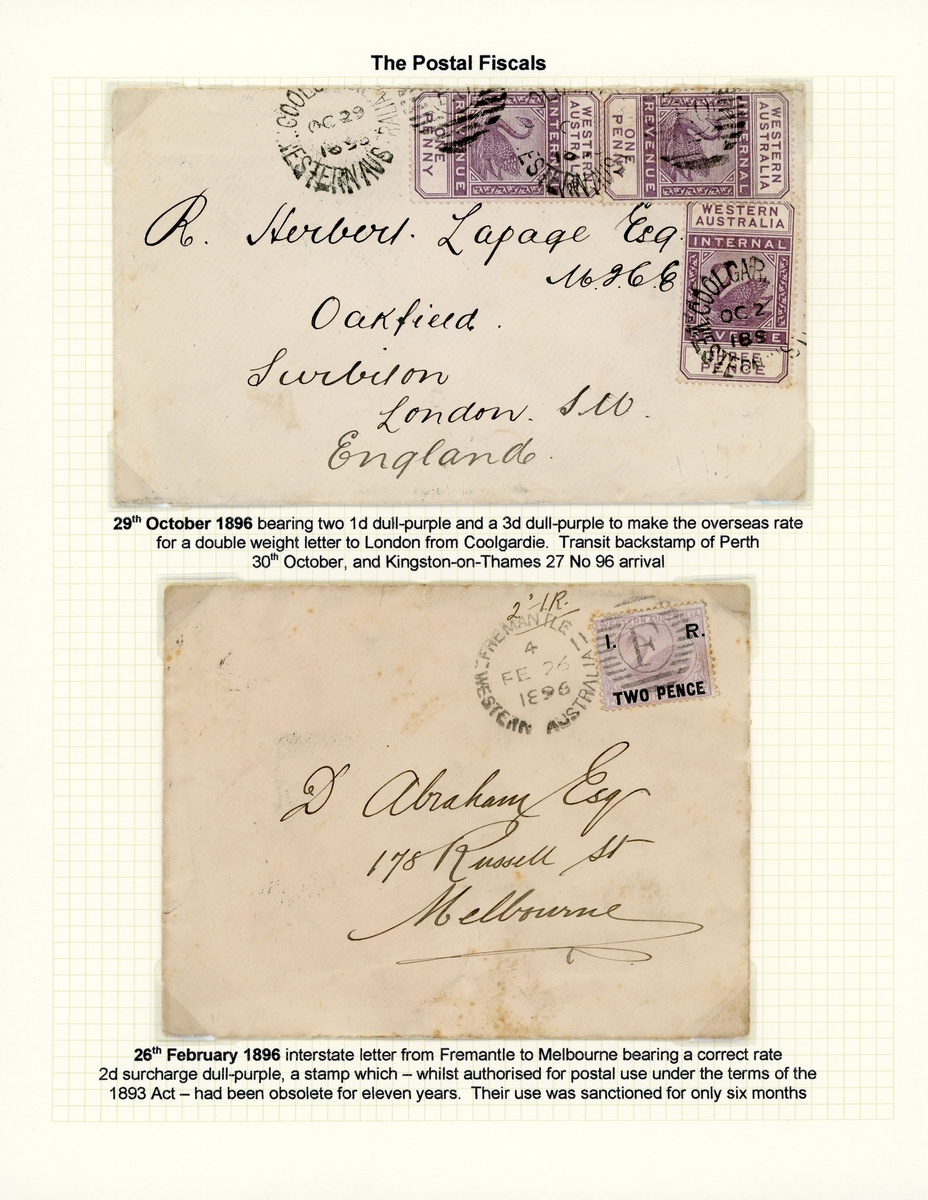 The Postal Fiscals
COOLG
OC 29
189
WESTERN AUS
ONE PENNY
REVENUE
INTERNAL
WESTERN AUSTRALIA
ONE PENNY
REVENUE
INTERNAL
WESTERN AUSTRALIA
WESTERN
AUSTRALIA
INTERNAL
COOLGAR
OC 2
189
PENCE
R. Herbert. Lapage Esq.
M.I.C.E
Oakfield.
Surbiton
London. S.W.
England.
29th October 1896 bearing two 1d dull-purple and a 3d dull-purple to make the overseas rate
for a double weight letter to London from Coolgardie. Transit backstamp of Perth
30th October, and Kingston-on-Thames 27 No 96 arrival
2' I.R.
FREMANTLE
4
FE 26
1896
WESTERN AUSTRALIA
WESTERN AUSTRALIA
I. R.
F
TWO PENCE
D Abraham Esq
178 Russell St
Melbourne
26th February 1896 interstate letter from Fremantle to Melbourne bearing a correct rate
2d surcharge dull-purple, a stamp which – whilst authorised for postal use under the terms of the
1893 Act – had been obsolete for eleven years. Their use was sanctioned for only six months